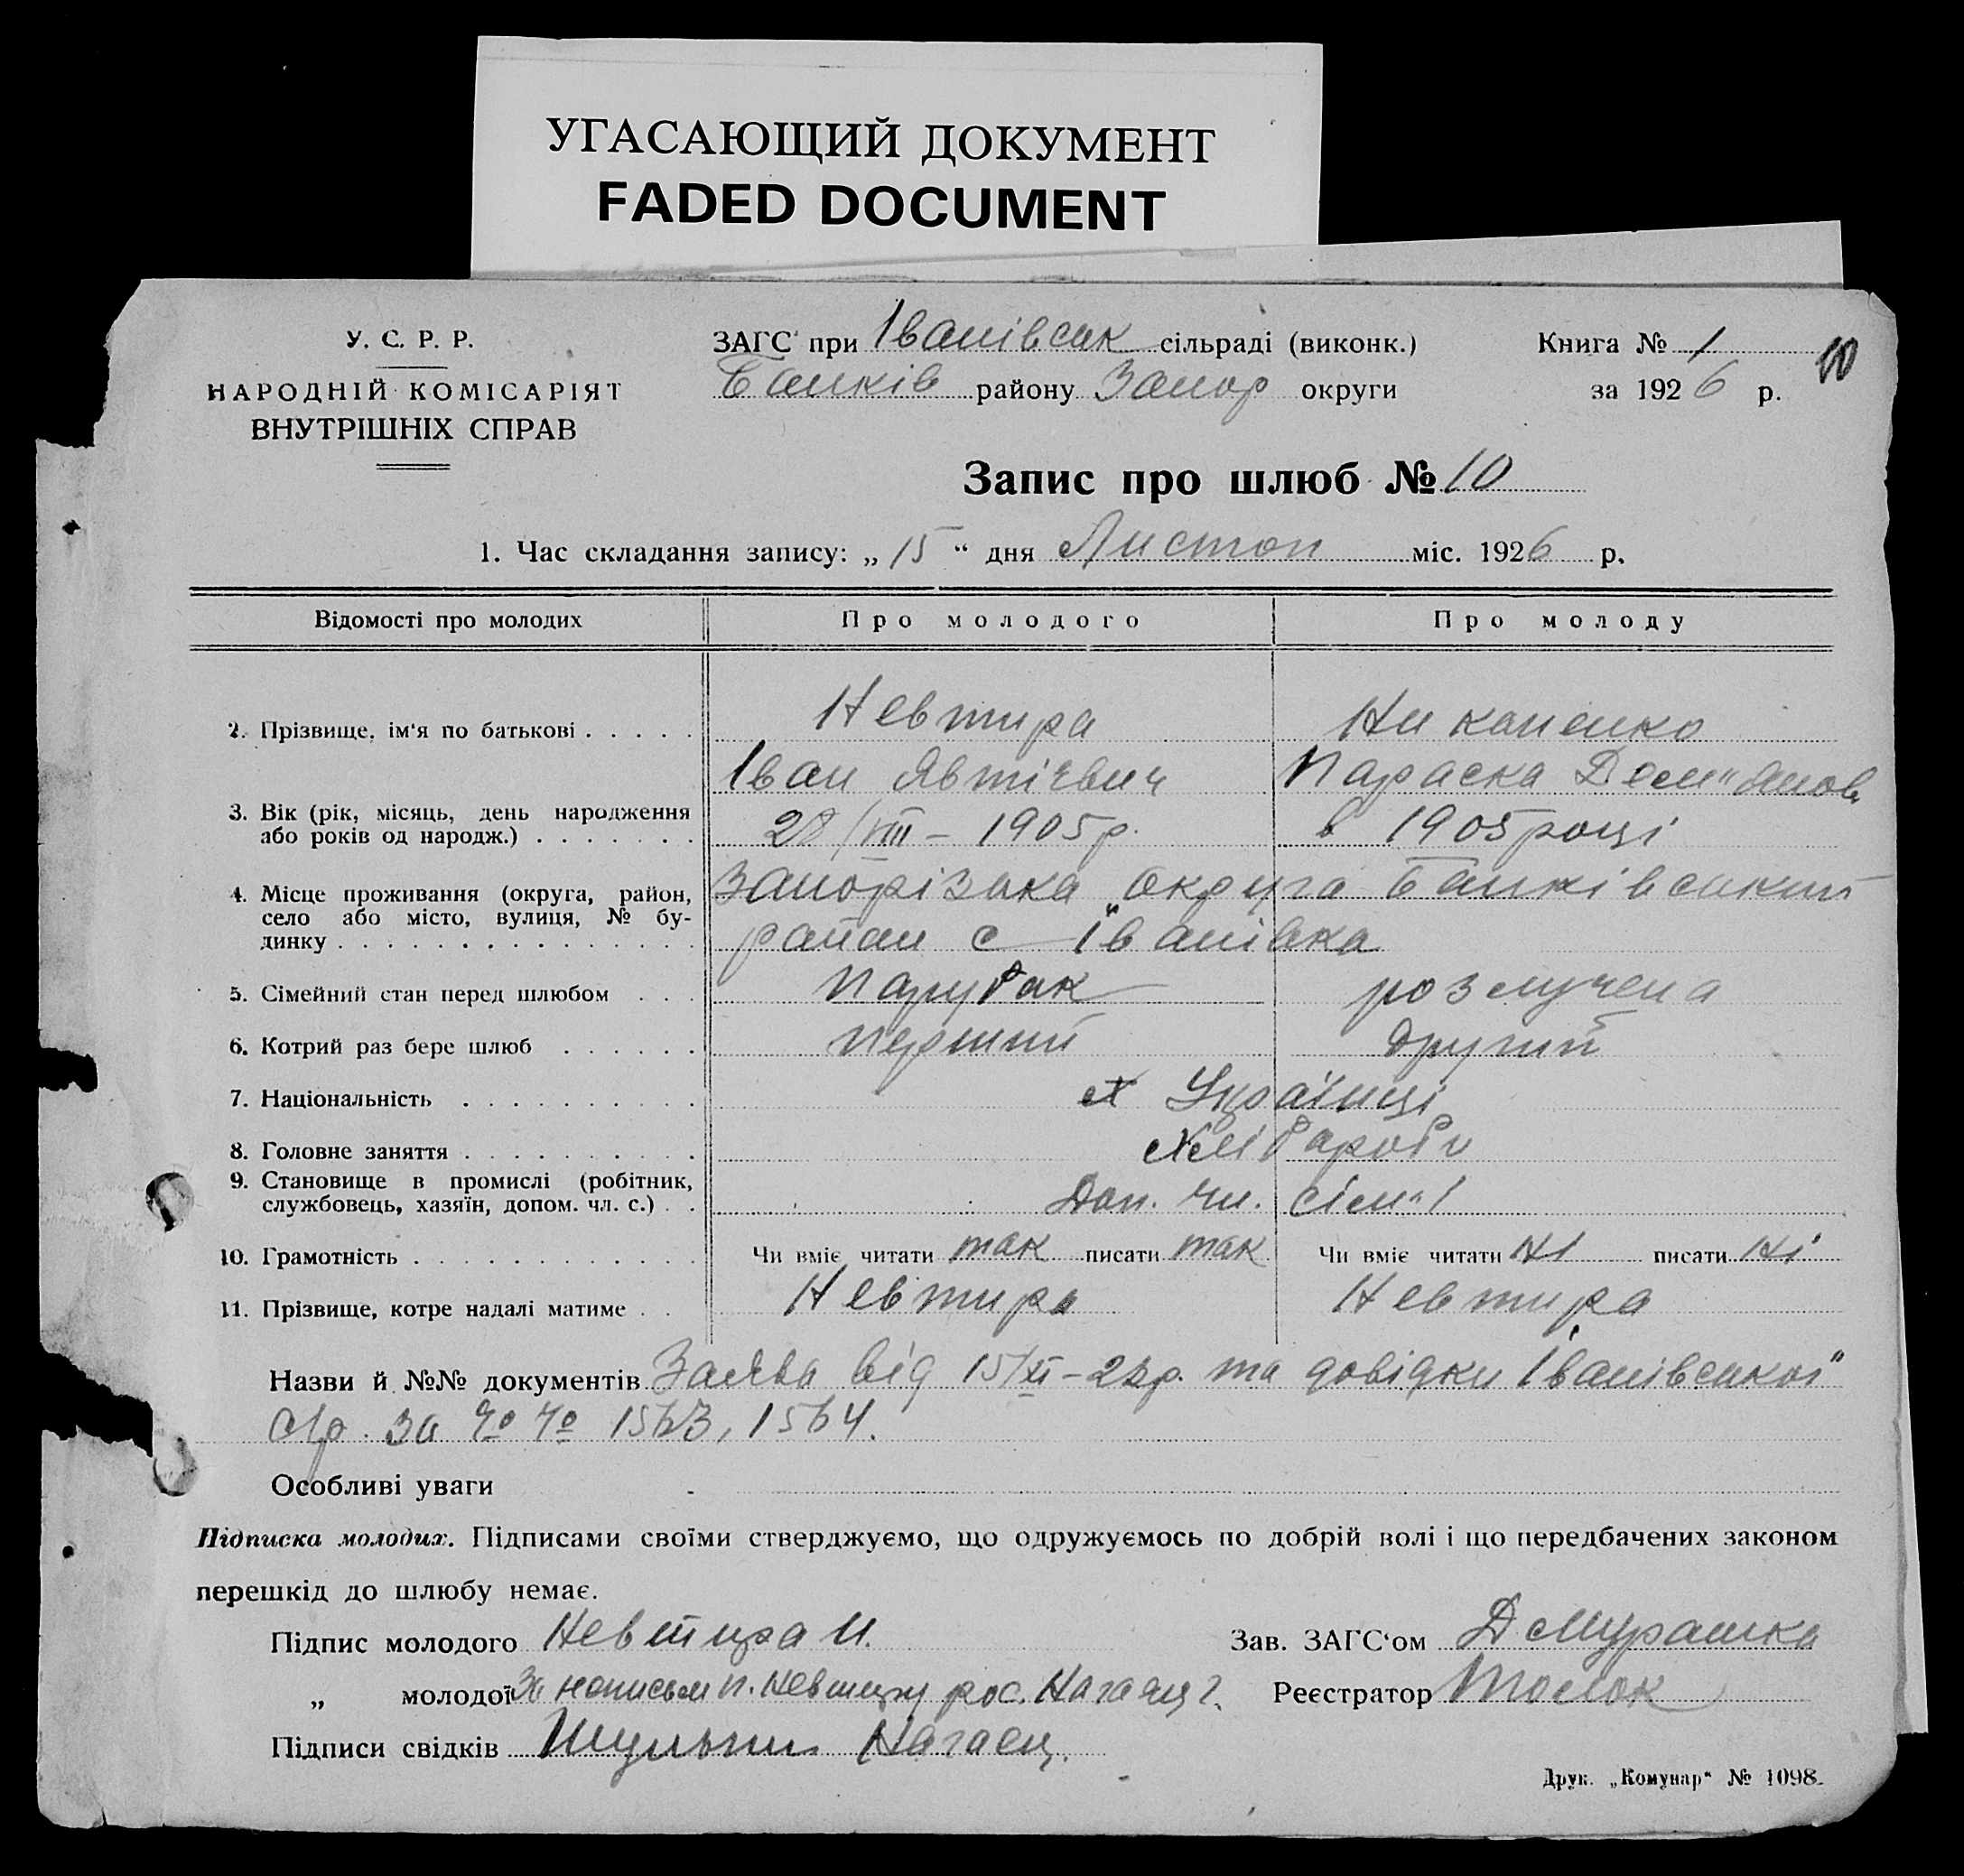 УГАСАЮЩИЙ ДОКУМЕНТ
FADED DOCUMENT
У. С. Р. Р.
НАРОДНІЙ КОМІСАРІЯТ
ВНУТРІШНІХ СПРАВ
ЗАГС' при Іванівськ сільраді (виконк.)
Банків району Запор округи
Книга № 1
10
за 1926 р.
Запис про шлюб № 10
1. Час складання запису: „ 15 “ дня Листоп міс. 1926 р.
Відомості про молодих
Про молодого
Про молоду
2. Прізвище, ім'я по батькові . . . . .
Невтира
Іван Явтієвич
Никоненко
Параска Дем"янов
3. Вік (рік, місяць, день народження
або років од народж.) . . . . . . .
28/VIII – 1905 р.
в 1905 році
4. Місце проживання (округа, район,
село або місто, вулиця, № бу-
динку . . . . . . . . . . . . . . . .
Запорізька округа Баньківський
район с Іванівка
5. Сімейний стан перед шлюбом . . .
Парубак
розлучена
6. Котрий раз бере шлюб . . . . . .
перший
другий
7. Національність . . . . . . . . . .
Українці
8. Головне заняття . . . . . . . . . .
Хлібароби
9. Становище в промислі (робітник,
службовець, хазяїн, допом. чл. с.) . .
Доп. чл. сім"ї
10. Грамотність . . . . . . . . . . . . .
Чи вміє читати так писати так
Чи вміє читати ні писати ні
11. Прізвище, котре надалі матиме . .
Невтира
Невтира
Назви й №№ документів Заява від 15/XI – 2 р. та довідки Іванівської
с/р. за 1564.
Особливі уваги
Підписка молодих. Підписами своїми стверджуємо, що одружуємось по добрій волі і що передбачених законом
перешкід до шлюбу немає.
Підпис молодого Невтира И.
Зав. ЗАГС‘ом Д Мурашка
„ молодої За неписьм П. Невтиру рос. Нагаец
Реєстратор
Підписи свідків Нагаец.
Друк. „Комунар“ № 1098.